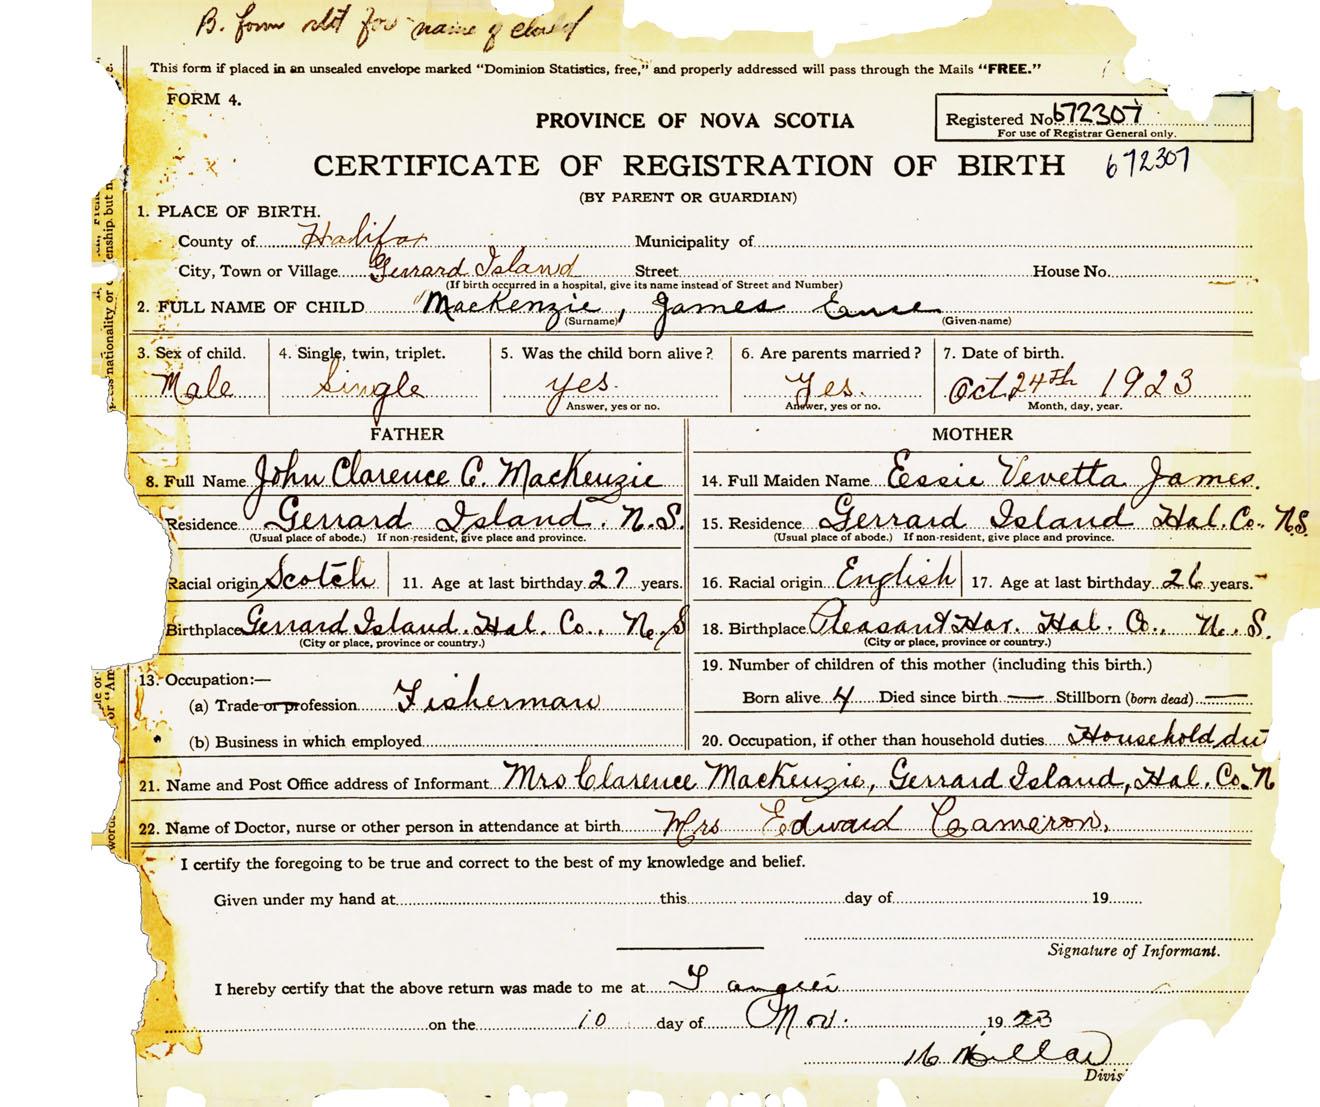 B. form slit for name of child
This form if placed in an unsealed envelope marked “Dominion Statistics, free,” and properly addressed will pass through the Mails “FREE.”
FORM 4.
Registered No. 672307
For use of Registrar General only.
PROVINCE OF NOVA SCOTIA
CERTIFICATE OF REGISTRATION OF BIRTH 672307
(BY PARENT OR GUARDIAN)
1. PLACE OF BIRTH.
County of Halifax Municipality of
City, Town or Village Gerrard Island Street House No.
(If birth occurred in a hospital, give its name instead of Street and Number)
2. FULL NAME OF CHILD MacKenzie, James
(Surname) (Given name)
3. Sex of child. 4. Single, twin, triplet. 5. Was the child born alive? 6. Are parents married? 7. Date of birth.
Male Single yes. Yes. Oct 24th 1923
Answer, yes or no. Answer, yes or no. Month, day, year.
FATHER MOTHER
8. Full Name John Clarence C. MacKenzie 14. Full Maiden Name Essie Vevetta James.
Residence Gerrard Island. N.S. 15. Residence Gerrard Island Hal. Co. N.S.
(Usual place of abode.) If non-resident, give place and province. (Usual place of abode.) If non-resident, give place and province.
Racial origin Scotch 11. Age at last birthday 27 years. 16. Racial origin English 17. Age at last birthday 26 years.
Birthplace Gerrard Island. Hal. Co., N. S 18. Birthplace Pleasant Har. Hal. Co., N. S.
(City or place, province or country.) (City or place, province or country.)
13. Occupation:— 19. Number of children of this mother (including this birth.)
(a) Trade or profession Fisherman Born alive 4 Died since birth — Stillborn (born dead) —
(b) Business in which employed 20. Occupation, if other than household duties Household dut
21. Name and Post Office address of Informant Mrs Clarence MacKenzie, Gerrard Island, Hal. Co. N
22. Name of Doctor, nurse or other person in attendance at birth Mrs Edward Cameron.
I certify the foregoing to be true and correct to the best of my knowledge and belief.
Given under my hand at this day of 19
Signature of Informant.
I hereby certify that the above return was made to me at Tangier
on the 10 day of Nov. 1923
Divis